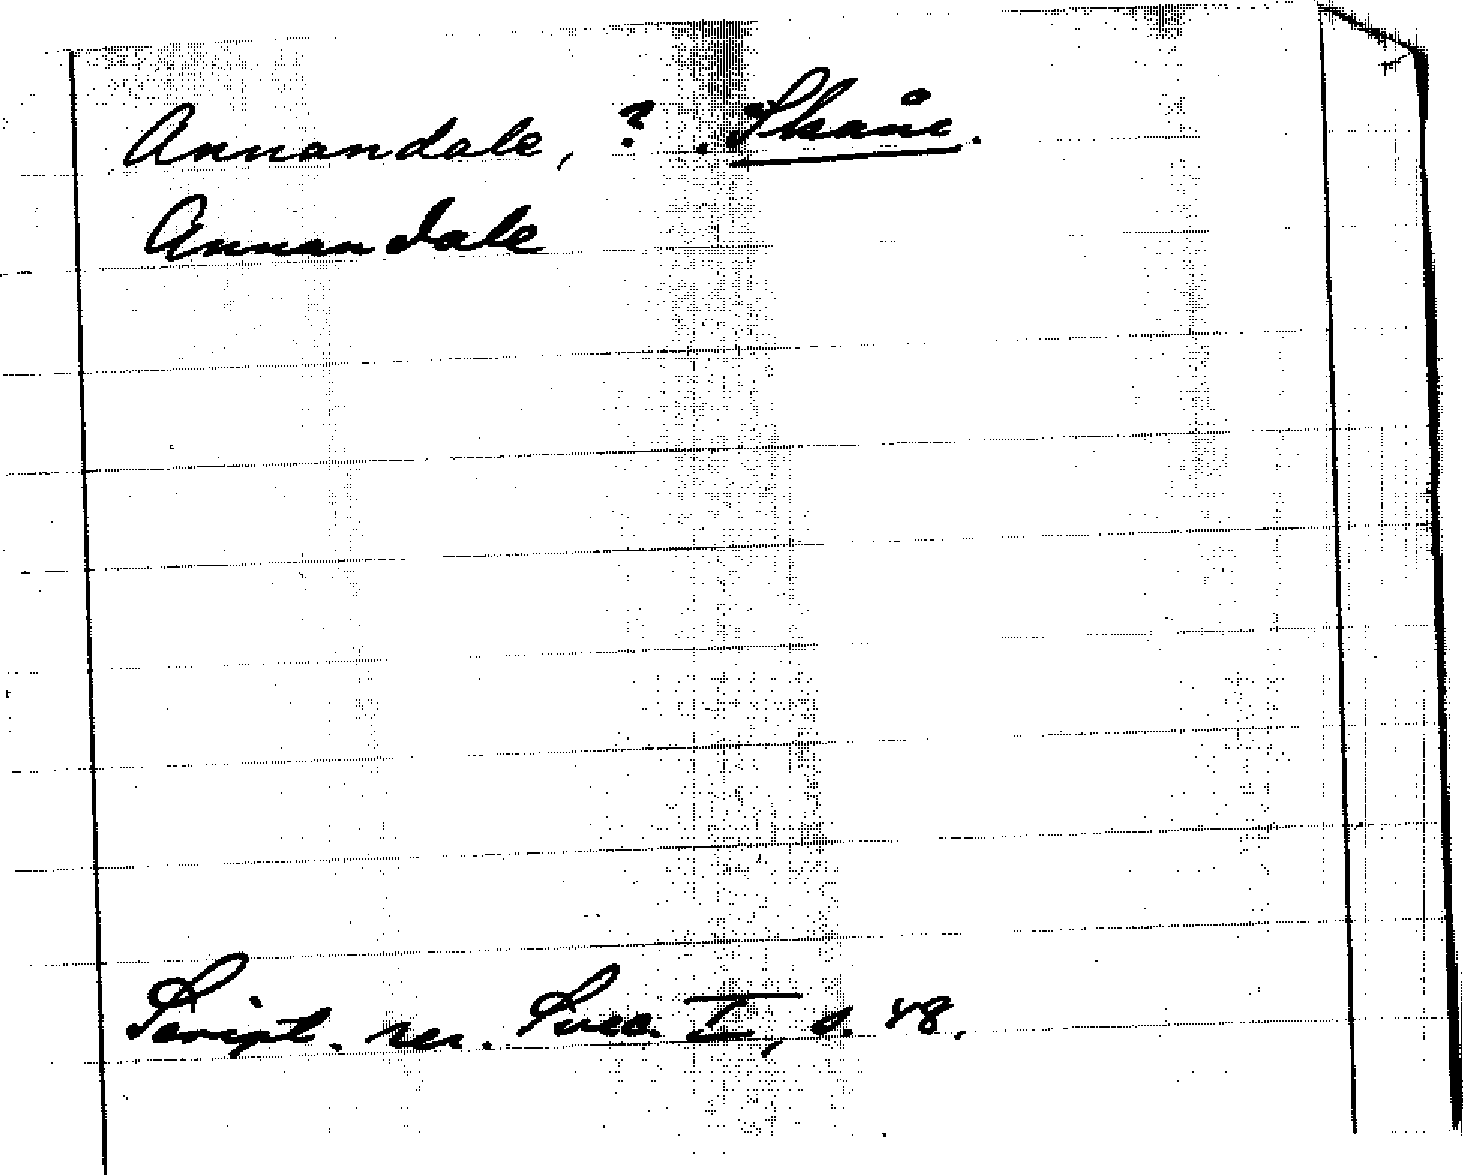 Annandale, ? . Skåne.
Annandale
Script. rer. Suec. I, s. 48.